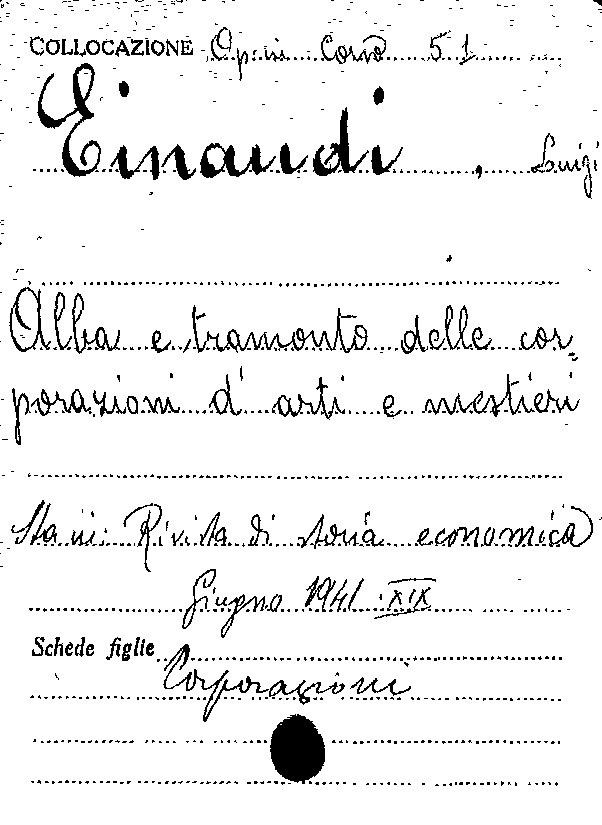 COLLOCAZIONE Op. in Corso 51
Einaudi, Luigi
Alba e tramonto delle cor-
porazioni d'arti e mestieri
Sta in: Rivista di storia economica
Giugno 1941. XIX
Schede figlie
Corporazioni